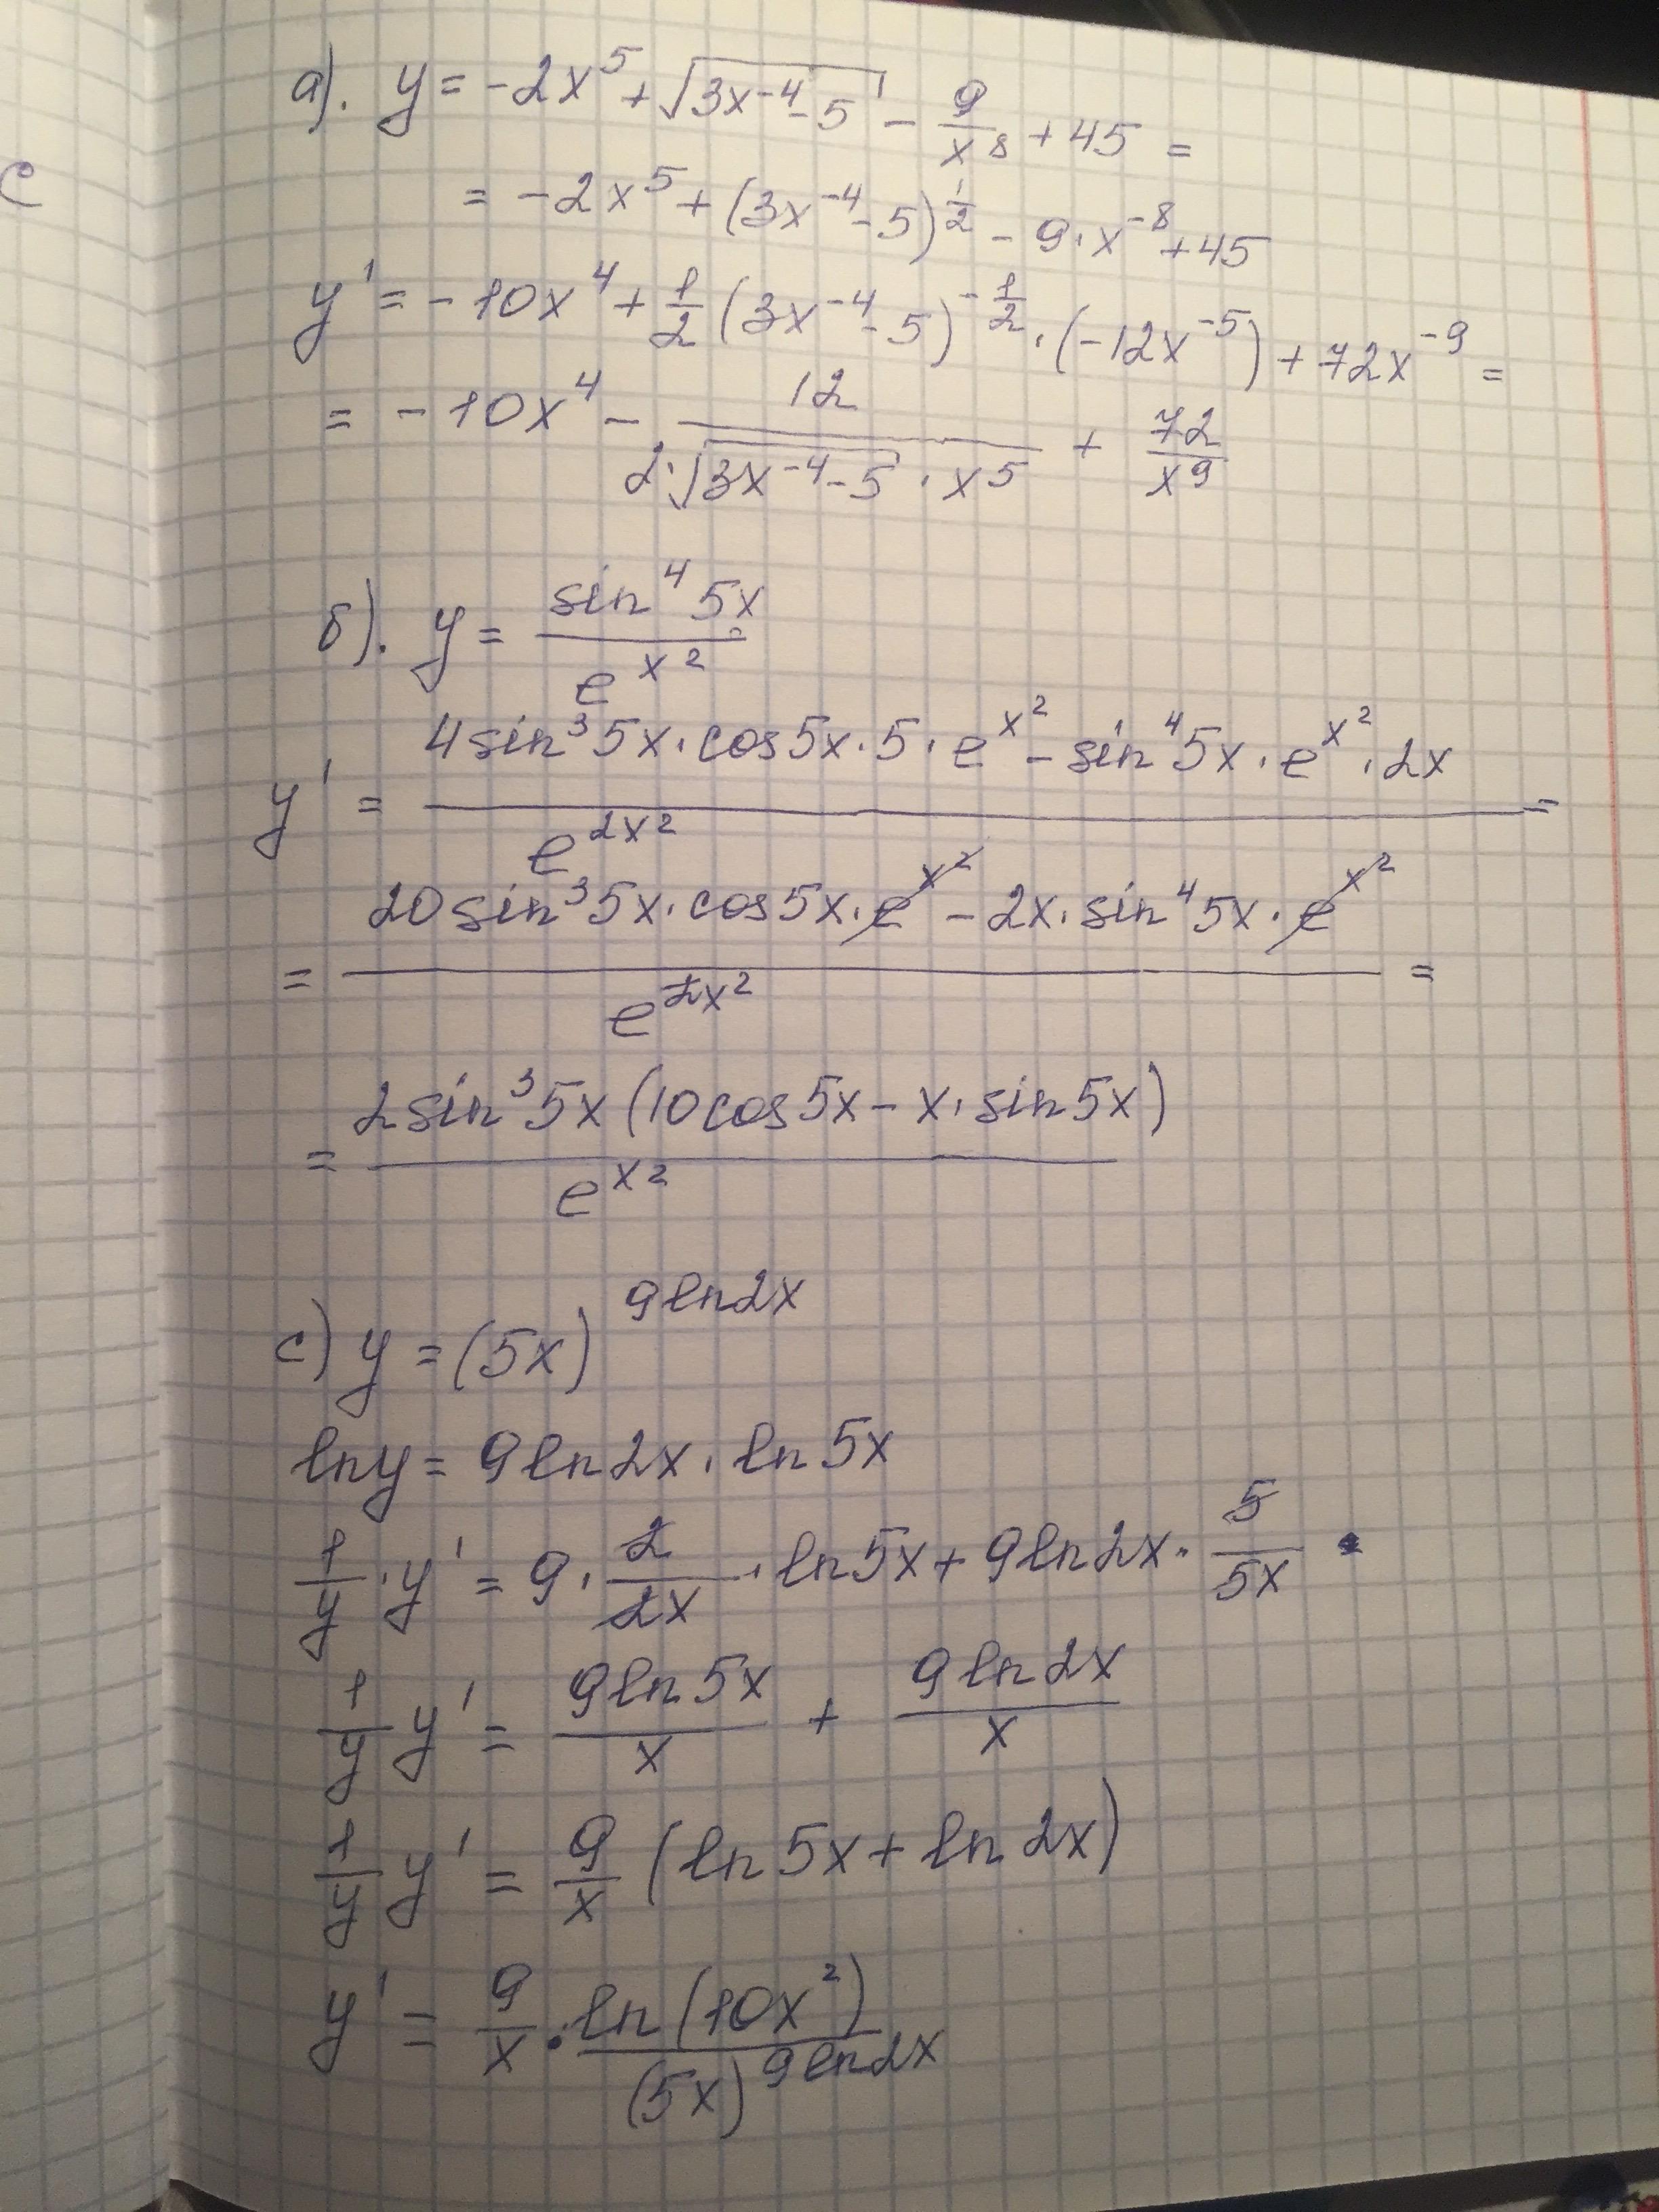 c
a). y = -2x⁵ + √(3x⁻⁴-5) - 9/x⁸ + 45 =
= -2x⁵ + (3x⁻⁴-5)^(1/2) - 9·x⁻⁸ + 45
y' = -10x⁴ + 1/2 (3x⁻⁴-5)^(-1/2) · (-12x⁻⁵) + 72x⁻⁹ =
= -10x⁴ - 12/(2·√(3x⁻⁴-5) · x⁵) + 72/x⁹
б). y = sin⁴5x / e^(x²)
y' = (4sin³5x · cos5x · 5 · e^(x²) - sin⁴5x · e^(x²) · 2x) / e^(2x²) =
= (20sin³5x · cos5x · e^(x²) - 2x · sin⁴5x · e^(x²)) / e^(2x²) =
= 2sin³5x (10cos5x - x · sin5x) / e^(x²)
c) y = (5x)^(9ln2x)
lny = 9ln2x · ln5x
1/y · y' = 9 · 2/2x · ln5x + 9ln2x · 5/5x
1/y y' = 9ln5x/x + 9ln2x/x
1/y y' = 9/x (ln5x + ln2x)
y' = 9/x · ln(10x²)/(5x)^(9ln2x)